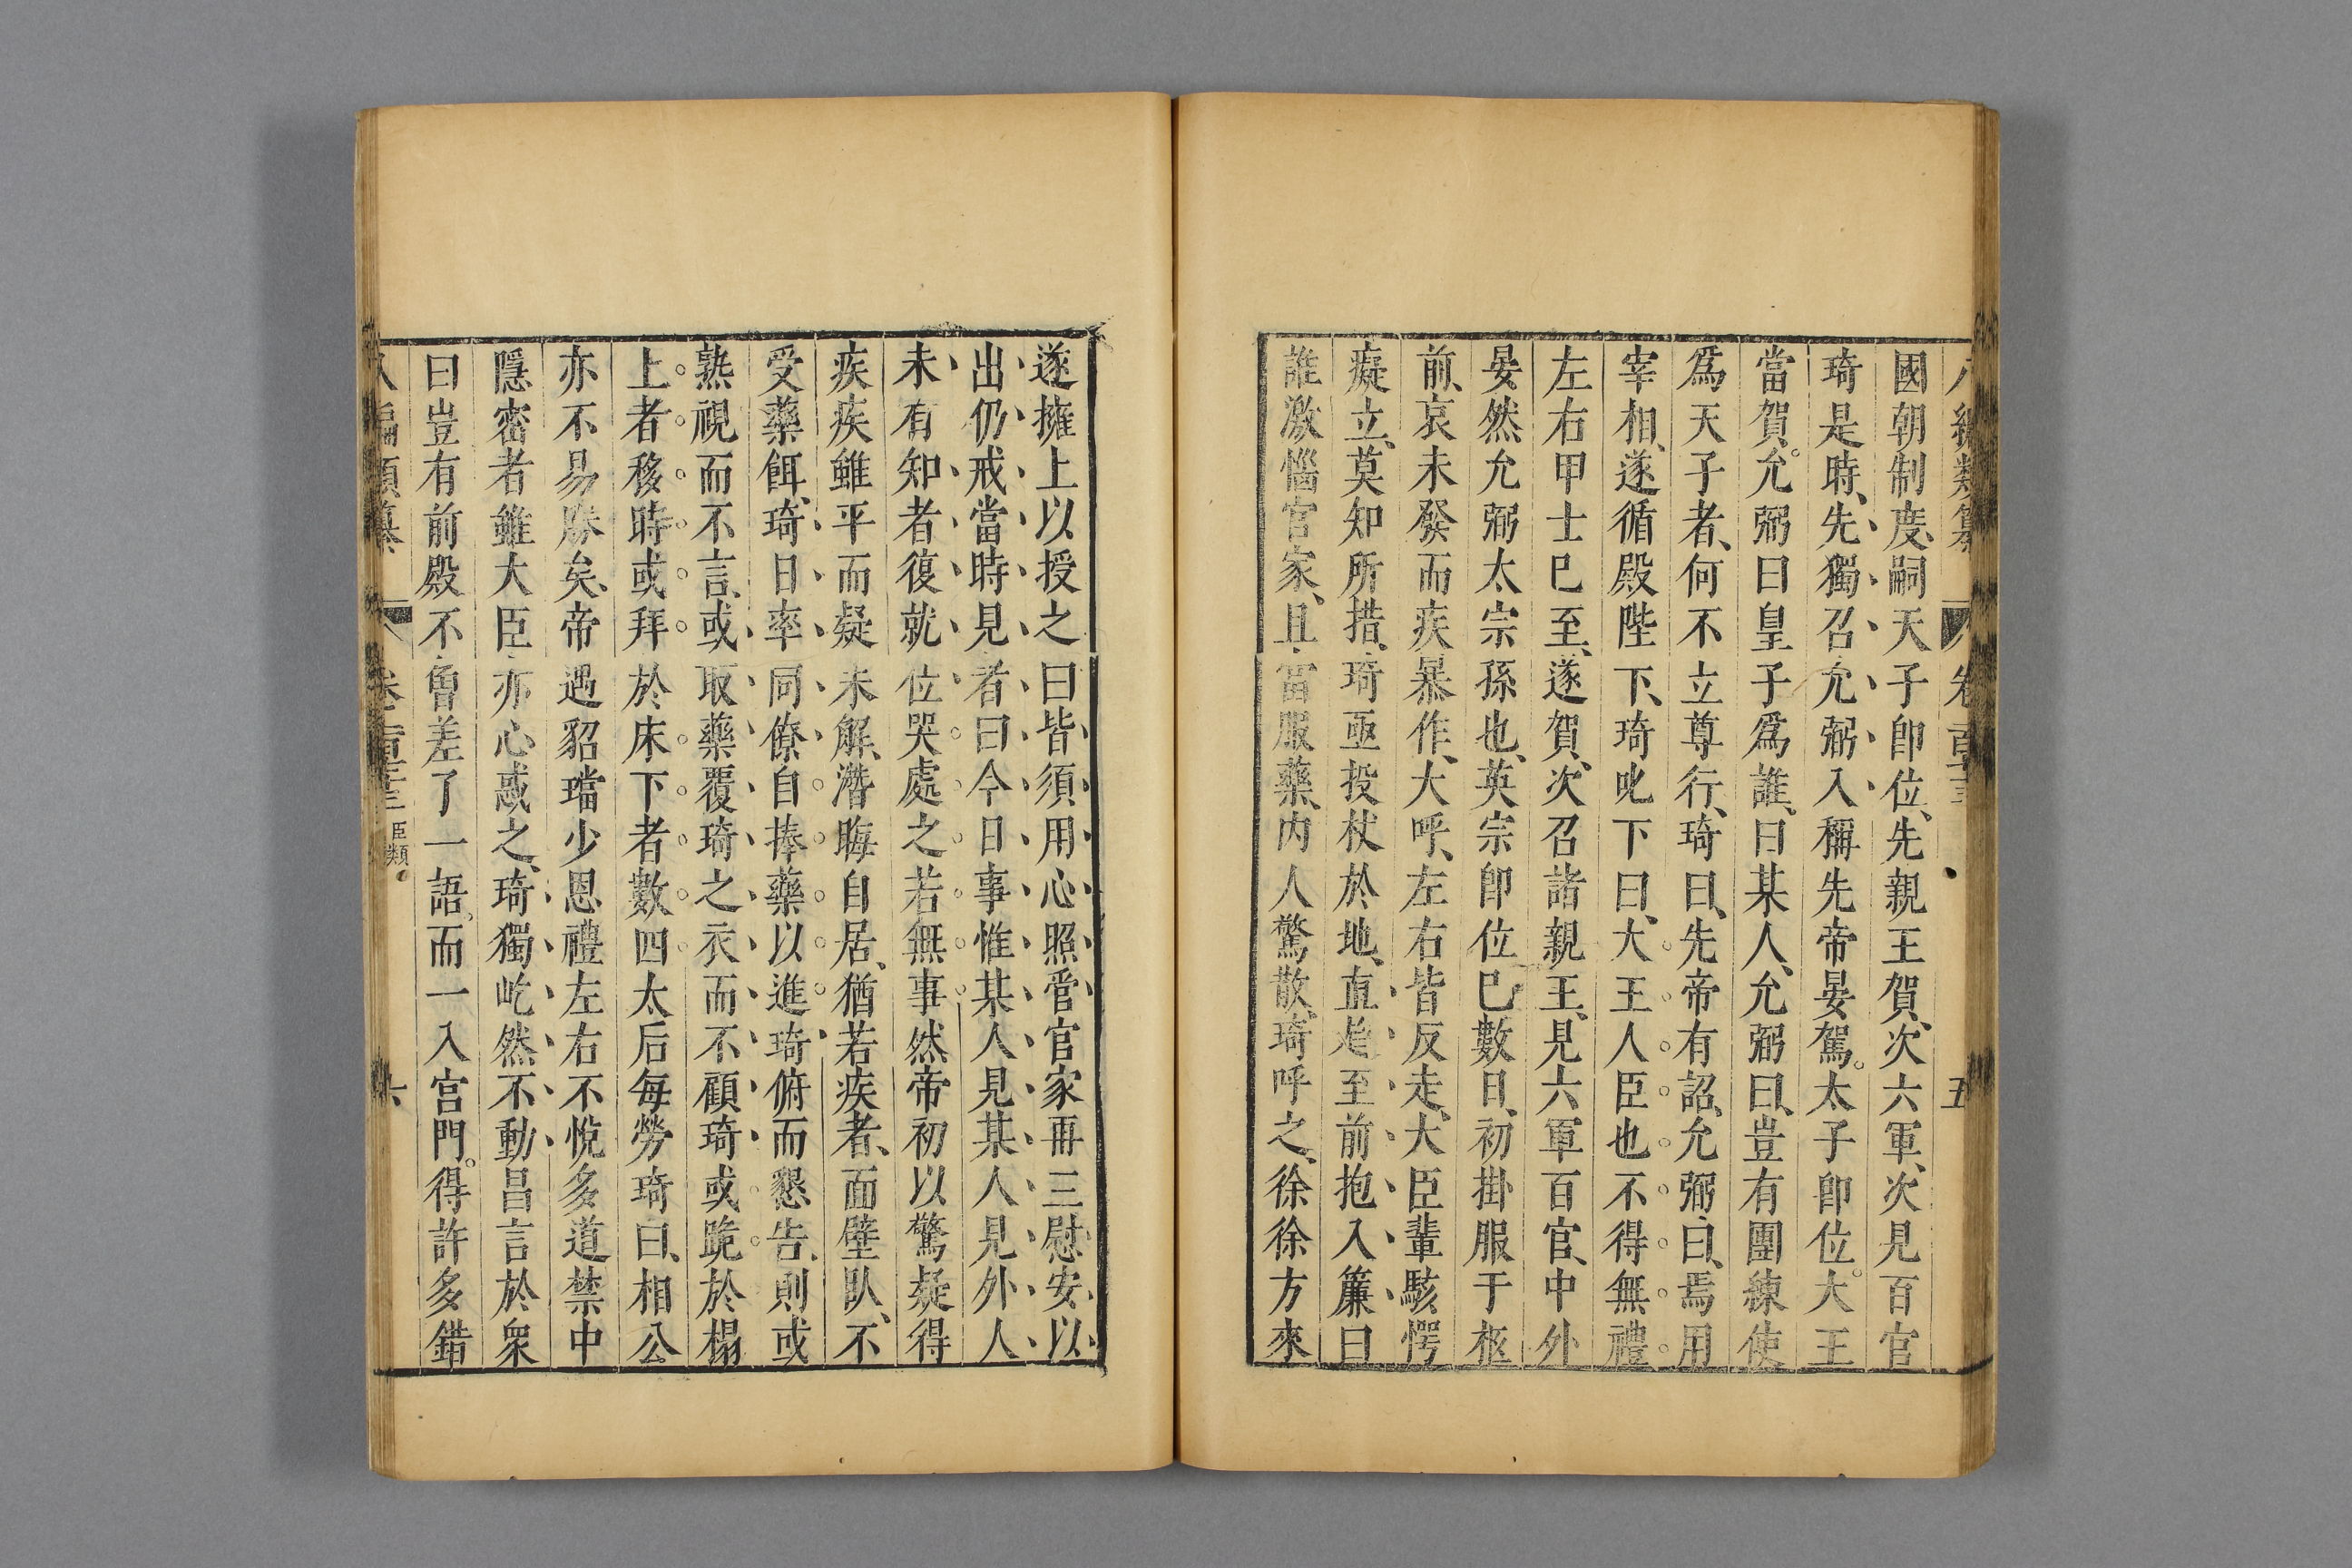 國朝制度嗣天子卽位、先親王賀、次六軍、次見百官
琦是時、先獨召允弼入稱先帝晏駕。太子卽位。大王
當賀。允弼曰皇子爲誰、曰某人、允弼曰、豈有團練使
爲天子者、何不立尊行、琦曰、先帝有詔、允弼曰、焉用
宰相、遂循殿陛下、琦叱下曰、大王人臣也不得無禮
左右甲士已至、遂賀、次召諸親王、見六軍百官、中外
晏然允弼太宗孫也、英宗卽位已數日、初掛服于柩
前、哀未發而疾暴作、大呼、左右皆反走、大臣輩駭愕
癡立、莫知所措、琦亟投杖於地、直造至前抱入簾曰
誰激惱官家、且當服藥、內人驚散、琦呼之、徐徐方來
遂擁上以授之曰皆須用心照管官家再三慰安以
出仍戒當時見者曰今日事惟某人見某人見外人
未有知者復就位哭處之若無事然帝初以驚疑得
疾疾雖平而疑未解、潛晦自居、猶若疾者、面壁臥、不
受藥餌、琦日率同僚自捧藥以進琦俯而懇告、則或
熟視而不言、或取藥覆琦之衣而不顧琦或跪於榻
上者移時或拜於床下者數四太后每勞琦曰、相公
亦不易勝矣、帝遇貂璫少恩禮左右不悅多道禁中
隱密者雖大臣亦心惑之、琦獨屹然不動昌言於衆
曰豈有前殿不曾差了一語。而一入宮門。得許多錯
八編類纂 卷一百三十三 臣類 六